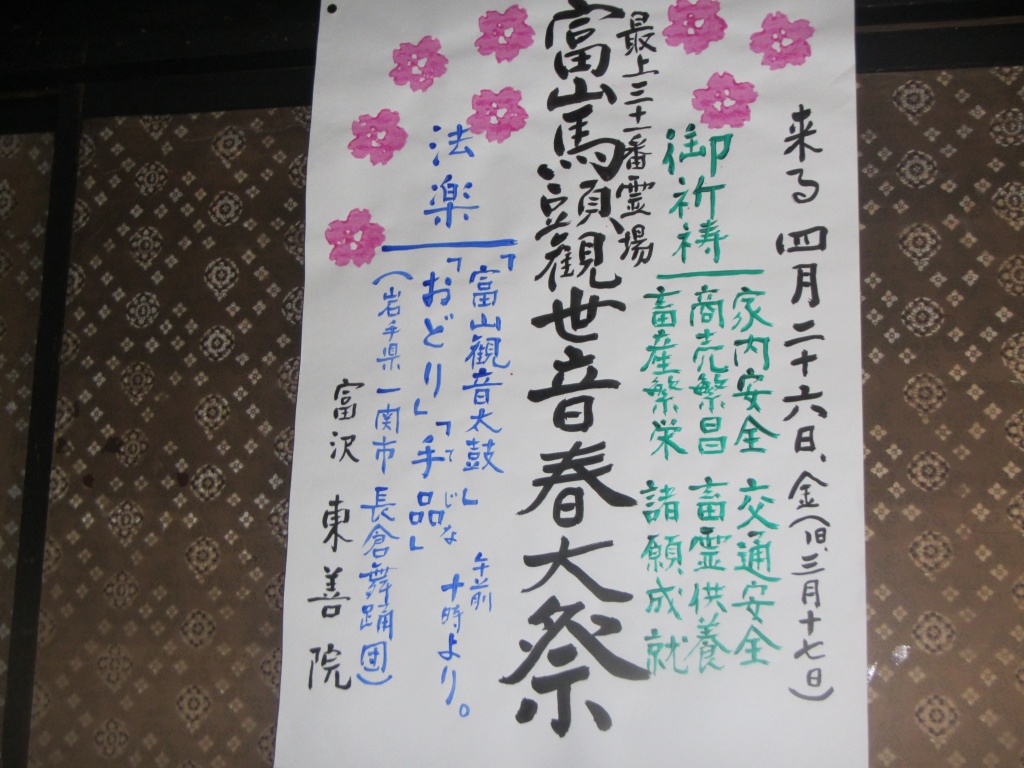 来る四月二十六日、金(旧、三月十七日)
御祈祷
家内安全 交通安全
商売繁昌 畜霊供養
畜産繁栄 諸願成就
最上三十一番霊場
富山馬頭観世音春大祭
法楽
「富山観音太鼓」 午前
「おどり」「手品」てじな 十時より。
(岩手県一関市 長倉舞踊団)
富沢 東善院